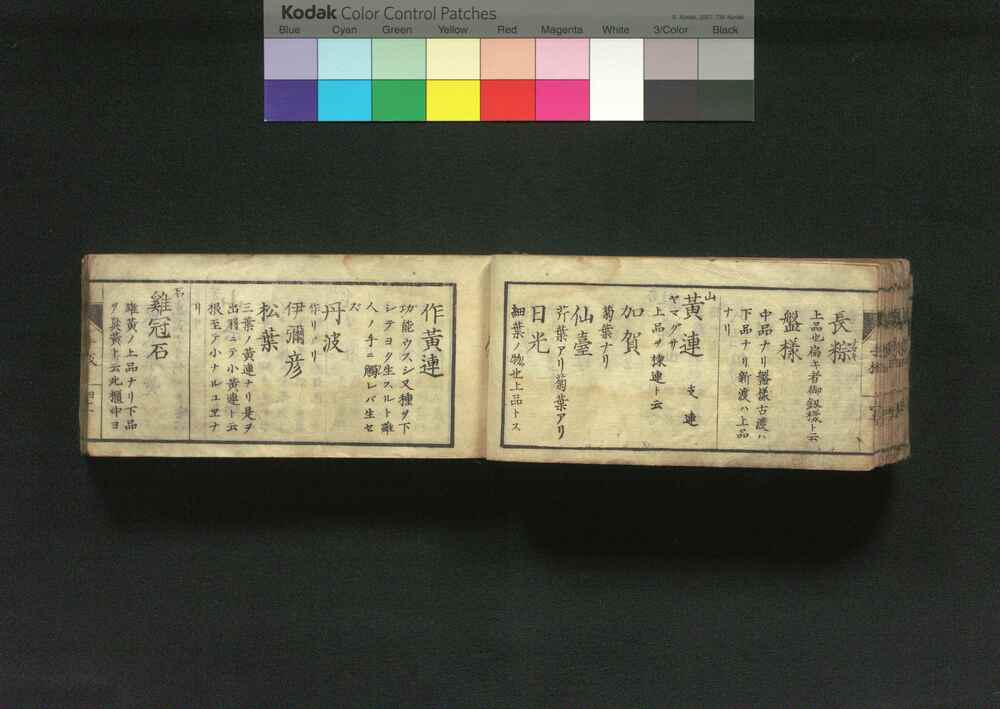 Kodak Color Control Patches
© Kodak, 2007, TM: Kodak
Blue Cyan Green Yellow Red Magenta White 3/Color Black
長粽
上品也扁キ者御釼様ト云
盤様
中品ナリ盤様古渡ハ
下品ナリ新渡ハ上品
ナリ
黄連 支連
山
ヤマグサ
上品ヲ棟連ト云
加賀
菊葉ナリ
仙臺
芹葉アリ菊葉アリ
日光
細葉ノ物也上品トス
作黄連
功能ウスシ又種ヲ下
シテヨク生スルト雖
人ノ手ニ觸レバ生セ
ズ
丹波
作リナリ
伊彌彦
松葉
三葉ノ黄連ナリ是ヲ
出羽ニテ小黄連ト云
根至テ小ナルユヱナ
リ
石
雞冠石
雄黄ノ上品ナリ下品